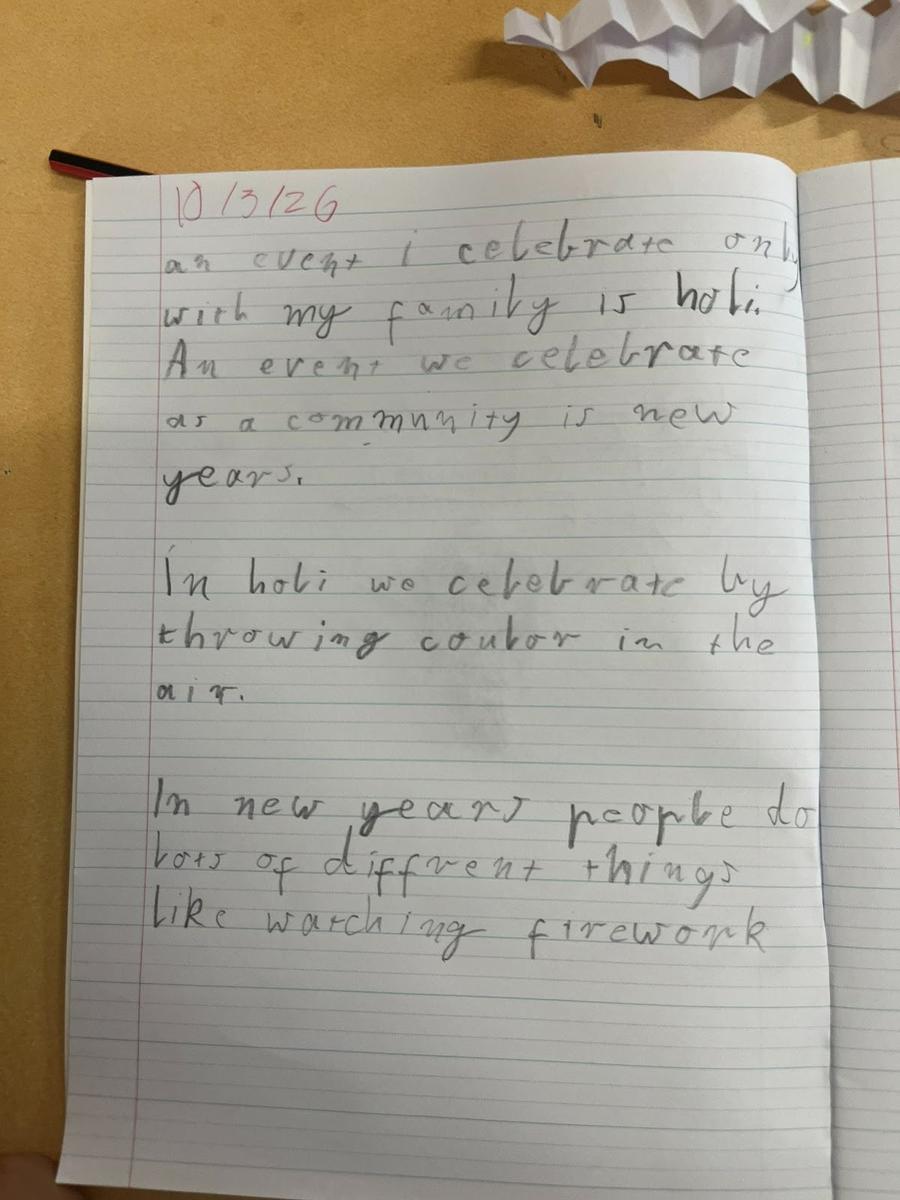 10/3/26
an event i celebrate only
with my family is holi.
An event we celebrate
as a community is new
years.
In holi we celebrate by
throwing coulor in the
air.
In new years people do
lots of diffrent things
like watching firework